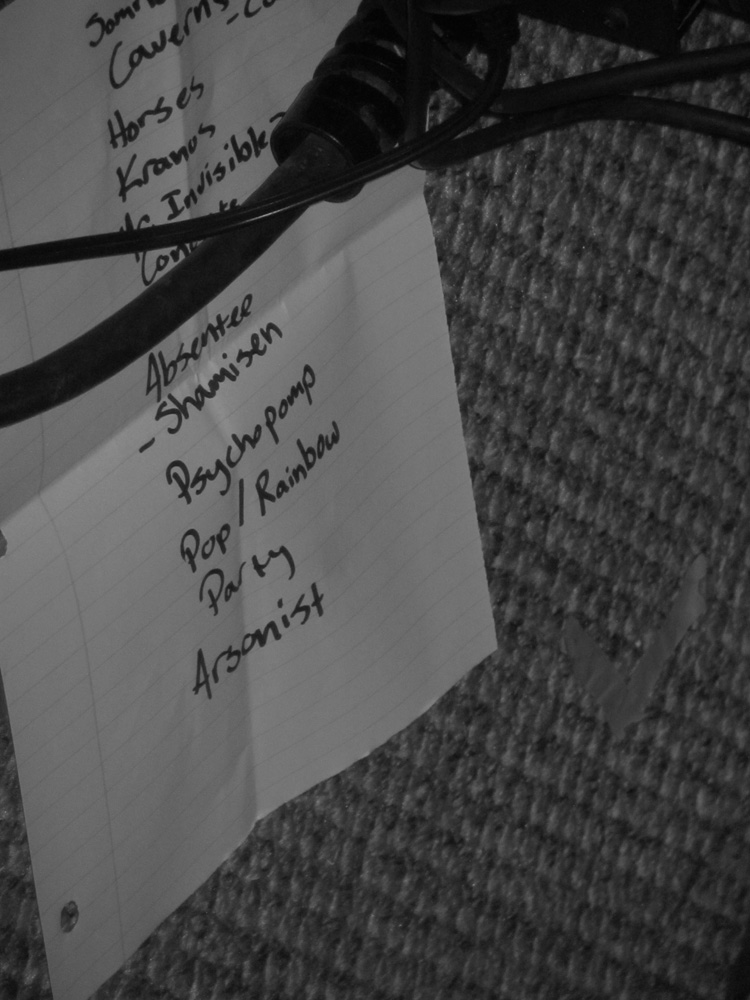 Caverns
Horses
Kranos
Mr Invisible
Absentee
- Shamisen
Psychopomp
Pop / Rainbow
Party
Arsonist